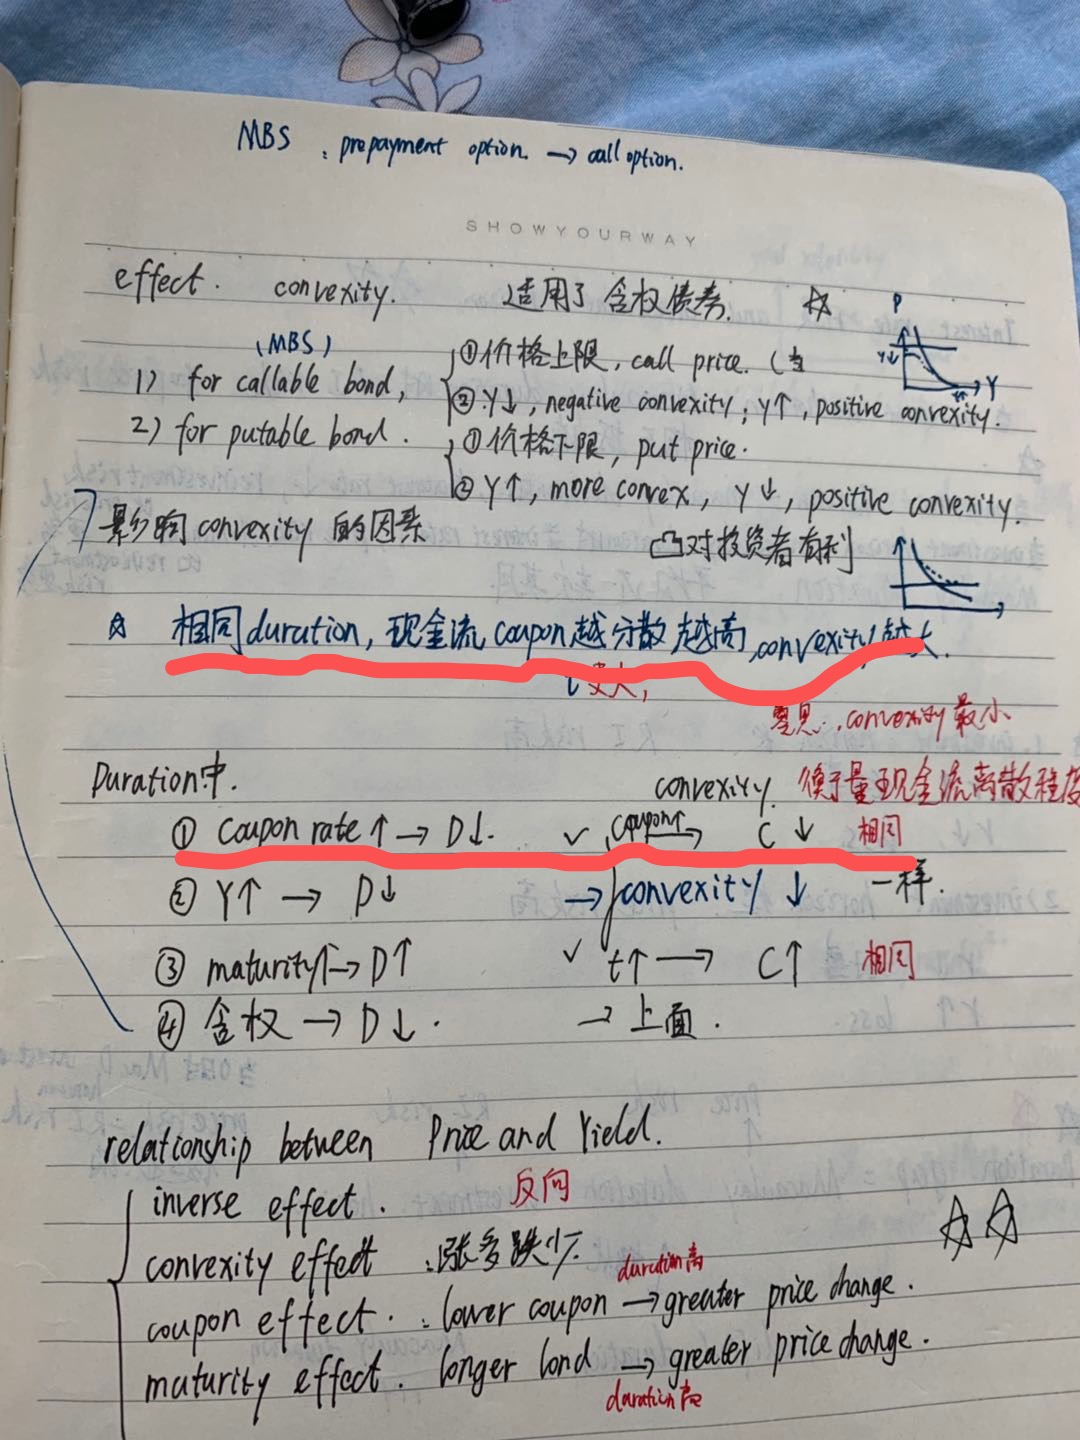 MBS : prepayment option. → call option.
SHOWYOURWAY
effect. convexity. 适用于含权债券. ☆
P
Y↓
Y
(MBS)
1) for callable bond, ①价格上限, call price. (当
②.Y↓, negative convexity; Y↑, positive convexity.
2) for putable bond. ①价格下限, put price.
②Y↑, more convex, Y↓, positive convexity.
影响 convexity 的因素
凸对投资者有利
☆ 相同duration, 现金流 coupon越分散越高, convexity越大.
t 大,
convexity最小
Duration中. convexity. 衡量现金流离散程度
① coupon rate↑ → D↓. ✓ coupon↑ → C↓ 相同
② Y↑ → D↓ → convexity ↓ 一样.
③ maturity↑→D↑ ✓ t↑ → C↑ 相同
④ 含权 → D↓. → 上面.
relationship between Price and Yield.
inverse effect. 反向
convexity effect : 涨多跌少. ☆☆
duration高
coupon effect. : lower coupon → greater price change.
maturity effect. longer bond → greater price change.
duration高